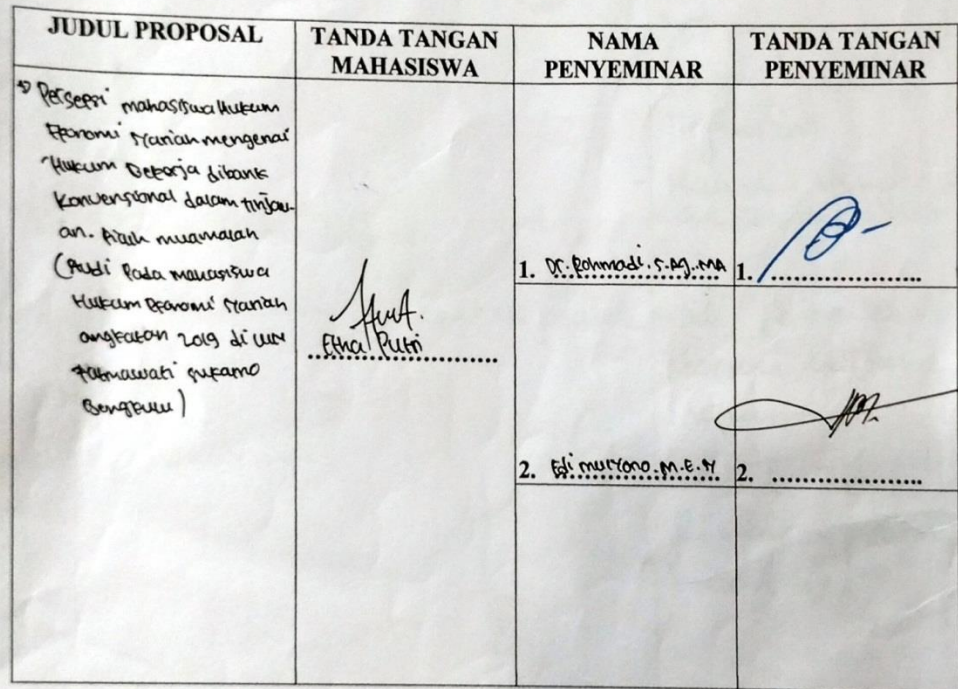 JUDUL PROPOSAL
TANDA TANGAN
MAHASISWA
NAMA
PENYEMINAR
TANDA TANGAN
PENYEMINAR
Persepsi mahasiswa Hukum
Ekonomi syariah mengenai
Hukum Bekerja dibank
Konvensional dalam tinjau-
an. Fiqih muamalah
(Studi Pada mahasiswa
Hukum Ekonomi syariah
angkatan 2019 di UIN
Fatmawati sukarno
Bengkulu)
Etha Putri
1. Dr. Rohmadi. S.Ag.. MA
1. ....................
2. Edi mulyono. M.E.Sy
2. ....................